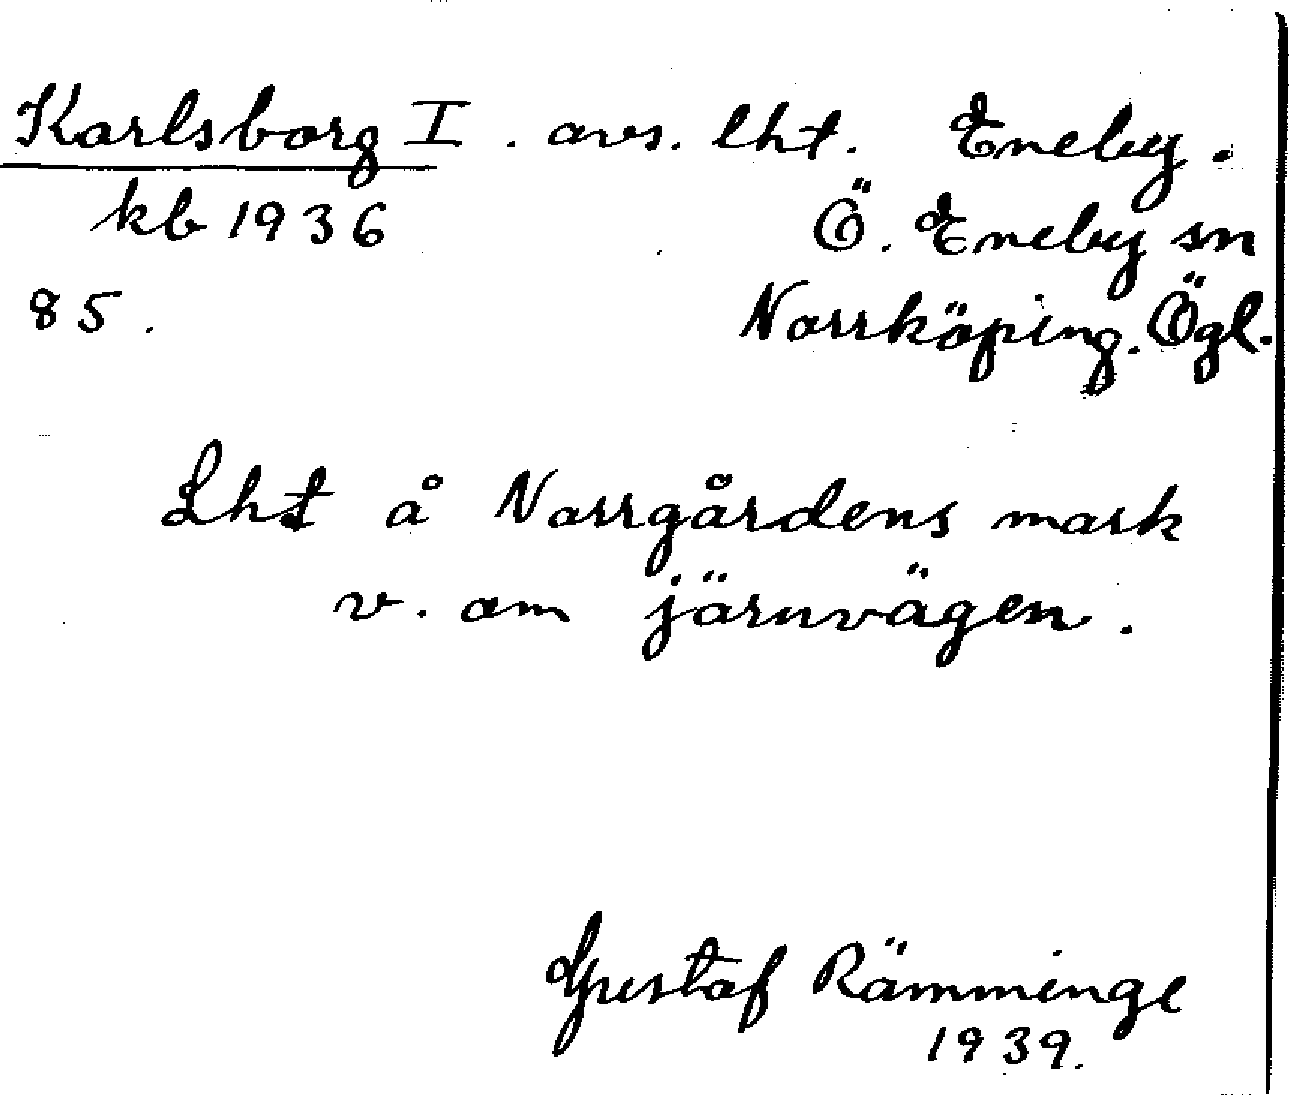 Karlsborg I. avs. lht. Eneby.
kb 1936 Ö. Eneby sn
85. Norrköping. Ögl.
Lht å Norrgårdens mark
v. om järnvägen.
Gustaf Rämminge
1939.